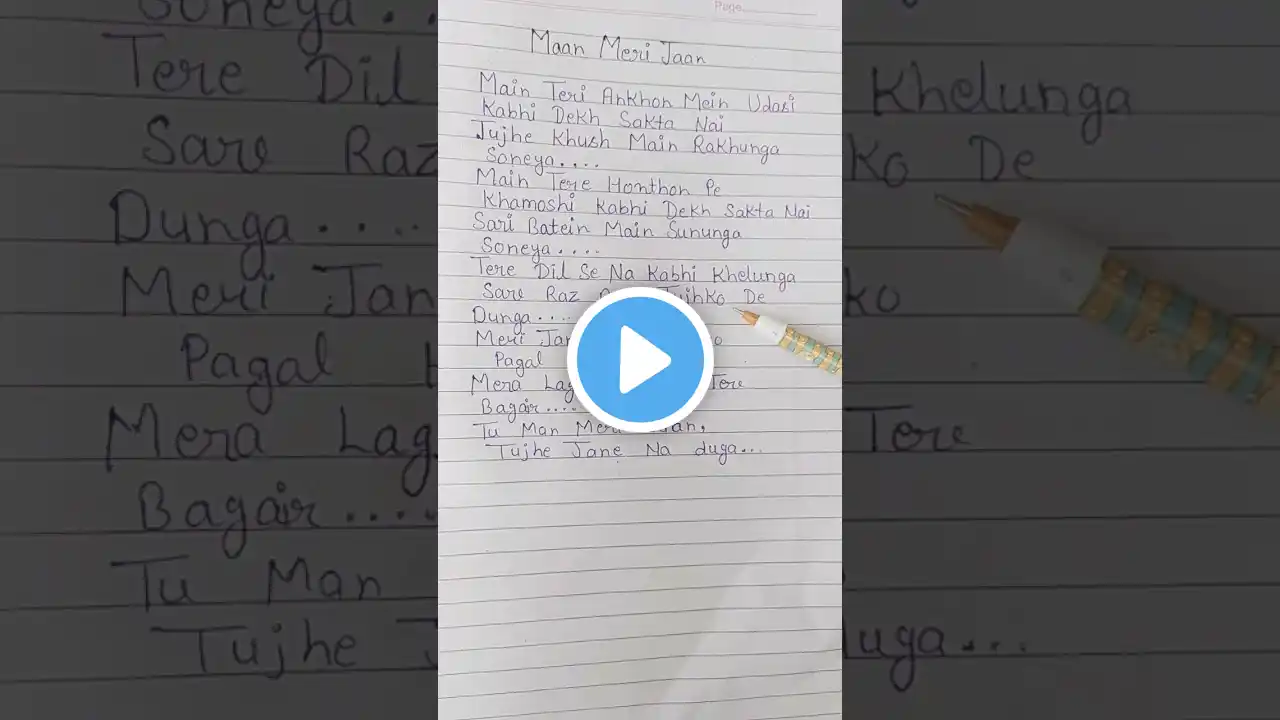 Page
Maan Meri Jaan
Main Teri Ankhon Mein Udasi
Kabhi Dekh Sakta Nai
Tujhe Khush Main Rakhunga
Soneya....
Main Tere Honthon Pe
Khamoshi Kabhi Dekh Sakta Nai
Sari Batein Main Sununga
Soneya....
Tere Dil Se Na Kabhi Khelunga
Sare Raz Tujhko De
Dunga....
Meri Jan
Pagal
Mera Lag Tere
Bagair....
Tu Man Meri Jaan,
Tujhe Jane Na duga...